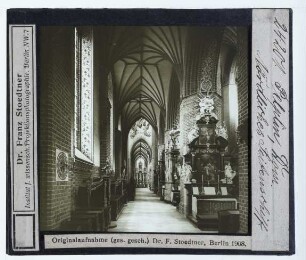 Dr. Franz Stoedtner
Institut f. wissensch. Projektionsphotographie, Berlin NW.7
Originalaufnahme (ges. gesch.) Dr. F. Stoedtner, Berlin 1908.
nördliches Seitenschiff